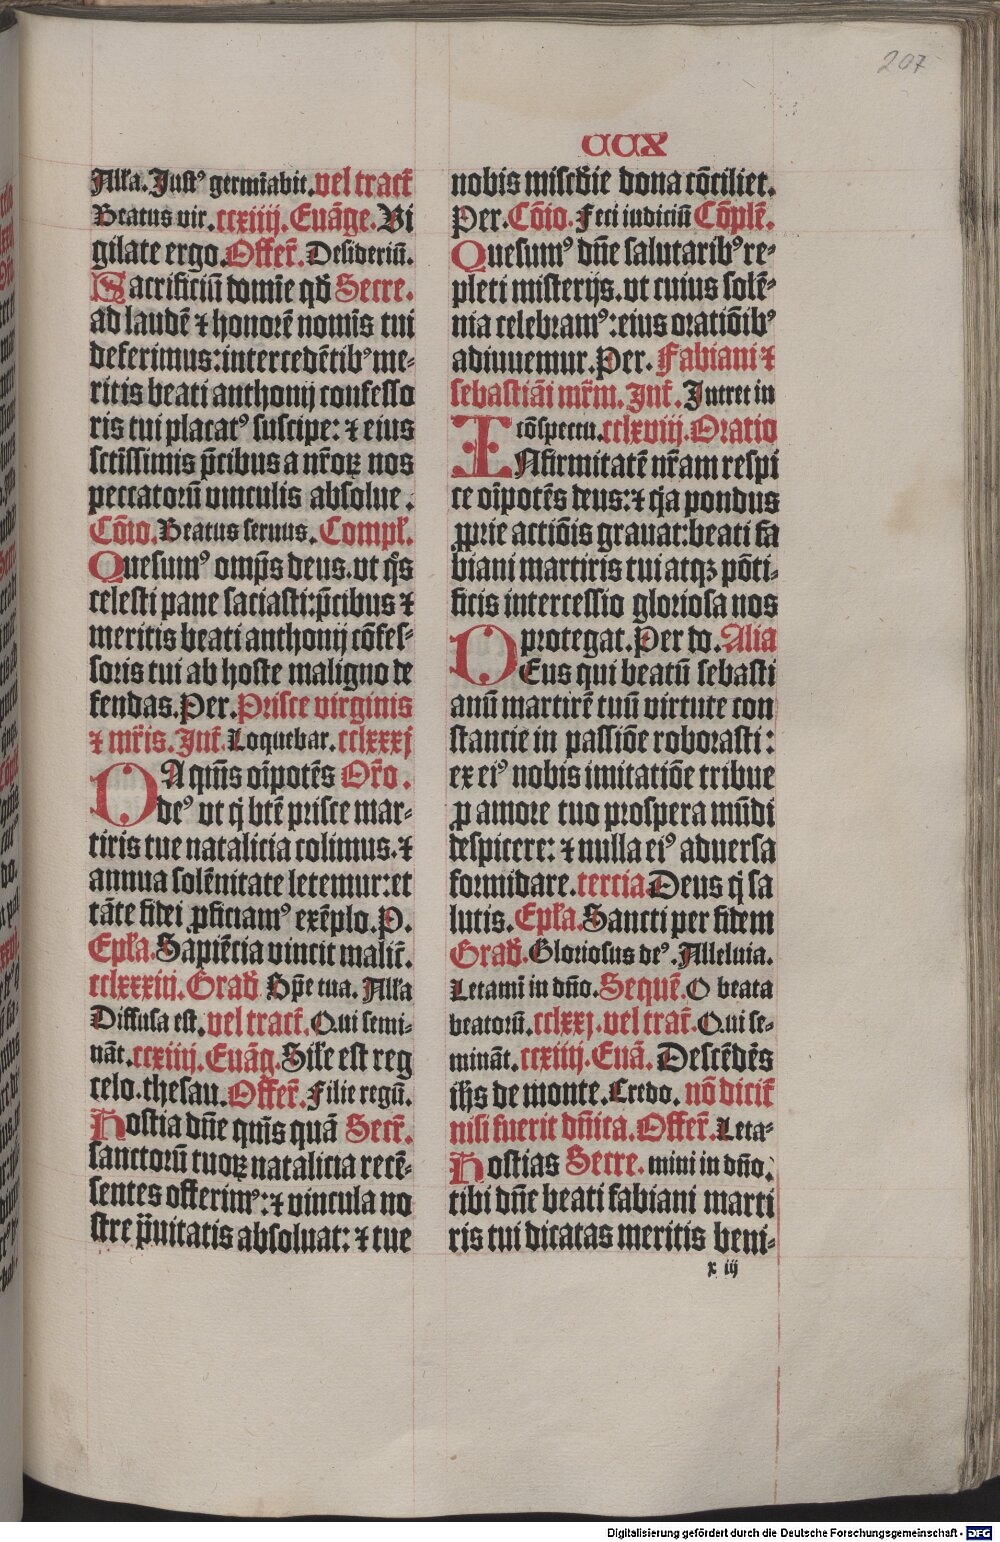 207
CCX
Alła. Justꝰ germīabit. vel tract̄
Beatus vir. ccxiiij. Euāge. Vi
gilate ergo. Offer̄. Desideriū.
Sacrificiū domīe qđ Secre.
ad laudē ⁊ honorē nomīs tui
deferimus: intercedētibꝰ me⸗
ritis beati anthonij confesso
ris tui placatꝰ suscipe: ⁊ eius
sctīssimis p̄cibus a nr̄oꝝ nos
peccatorū vinculis absolue.
Cōio. Beatus seruus. Compł.
Quesumꝰ omp̄s deus. vt q̄s
celesti pane saciasti: p̄cibus ⁊
meritis beati anthonij cōfes⸗
soris tui ab hoste maligno de
fendas. Per. Prisce virginis
⁊ mr̄is. Int̄. Loquebar. cclxxxj
DA quīs oīpotēs Or̄o.
deꝰ vt q̄ btē prisce mar⸗
tiris tue natalicia colimus. ⁊
annua solēnitate letemur: et
tāte fidei ꝓficiamꝰ exēplo. P.
Epła. Sapiēcia vincit malic̄.
cclxxxiij. Građ Sp̄e tua. Alła
Diffusa est. vel tract̄. Qui semi⸗
nāt. ccxiiij. Euāg. Sił'e est reg
celo. thesau. Offer̄. Filie regū.
Hostia dn̄e quīs quā Secr̄.
sanctorū tuoꝝ natalicia recē⸗
sentes offerimꝰ: ⁊ vincula no
stre p̄uitatis absoluat: ⁊ tue
nobis miscđie dona cōciliet.
Per. Cōio. Feci iudiciū Cōplē.
Quesumꝰ dn̄e salutaribꝰ re⸗
pleti misterijs. vt cuius solē⸗
nia celebramꝰ: eius oratiōibꝰ
adiuuemur. Per. Fabiani ⁊
sebastiāi mr̄m. Int̄. Intret in
cōspectu. cclxviij. Oratio
INfirmitatē nr̄am respi
ce oīpotēs deus: ⁊ q̄a pondus
ꝓprie actiōis grauat: beati fa
biani martiris tui atqꝫ pōti⸗
ficis intercessio gloriosa nos
protegat. Per do. Alia
DEus qui beatū sebasti
anū martirē tuū virtute con
stancie in passiōe roborasti:
ex eiꝰ nobis imitatiōe tribue
ꝓ amore tuo prospera mūdi
despicere: ⁊ nulla eiꝰ aduersa
formidare. tercia. Deus q̄ sa
lutis. Epła. Sancti per fidem
Građ. Gloriosus deꝰ. Alleluia.
Letamī in dn̄o. Sequē. O beata
beatorū. cclxxj. vel trac̄t. Qui se⸗
mināt. ccxiiij. Euā. Descēdēs
ihs̄ de monte. Credo. nō dicit̄
nisi fuerit dn̄ica. Offer̄. Leta⸗
Hostias Secre. mini in dn̄o.
tibi dn̄e beati fabiani marti
ris tui dicatas meritis beni⸗
x iij
Digitalisierung gefördert durch die Deutsche Forschungsgemeinschaft - DFG